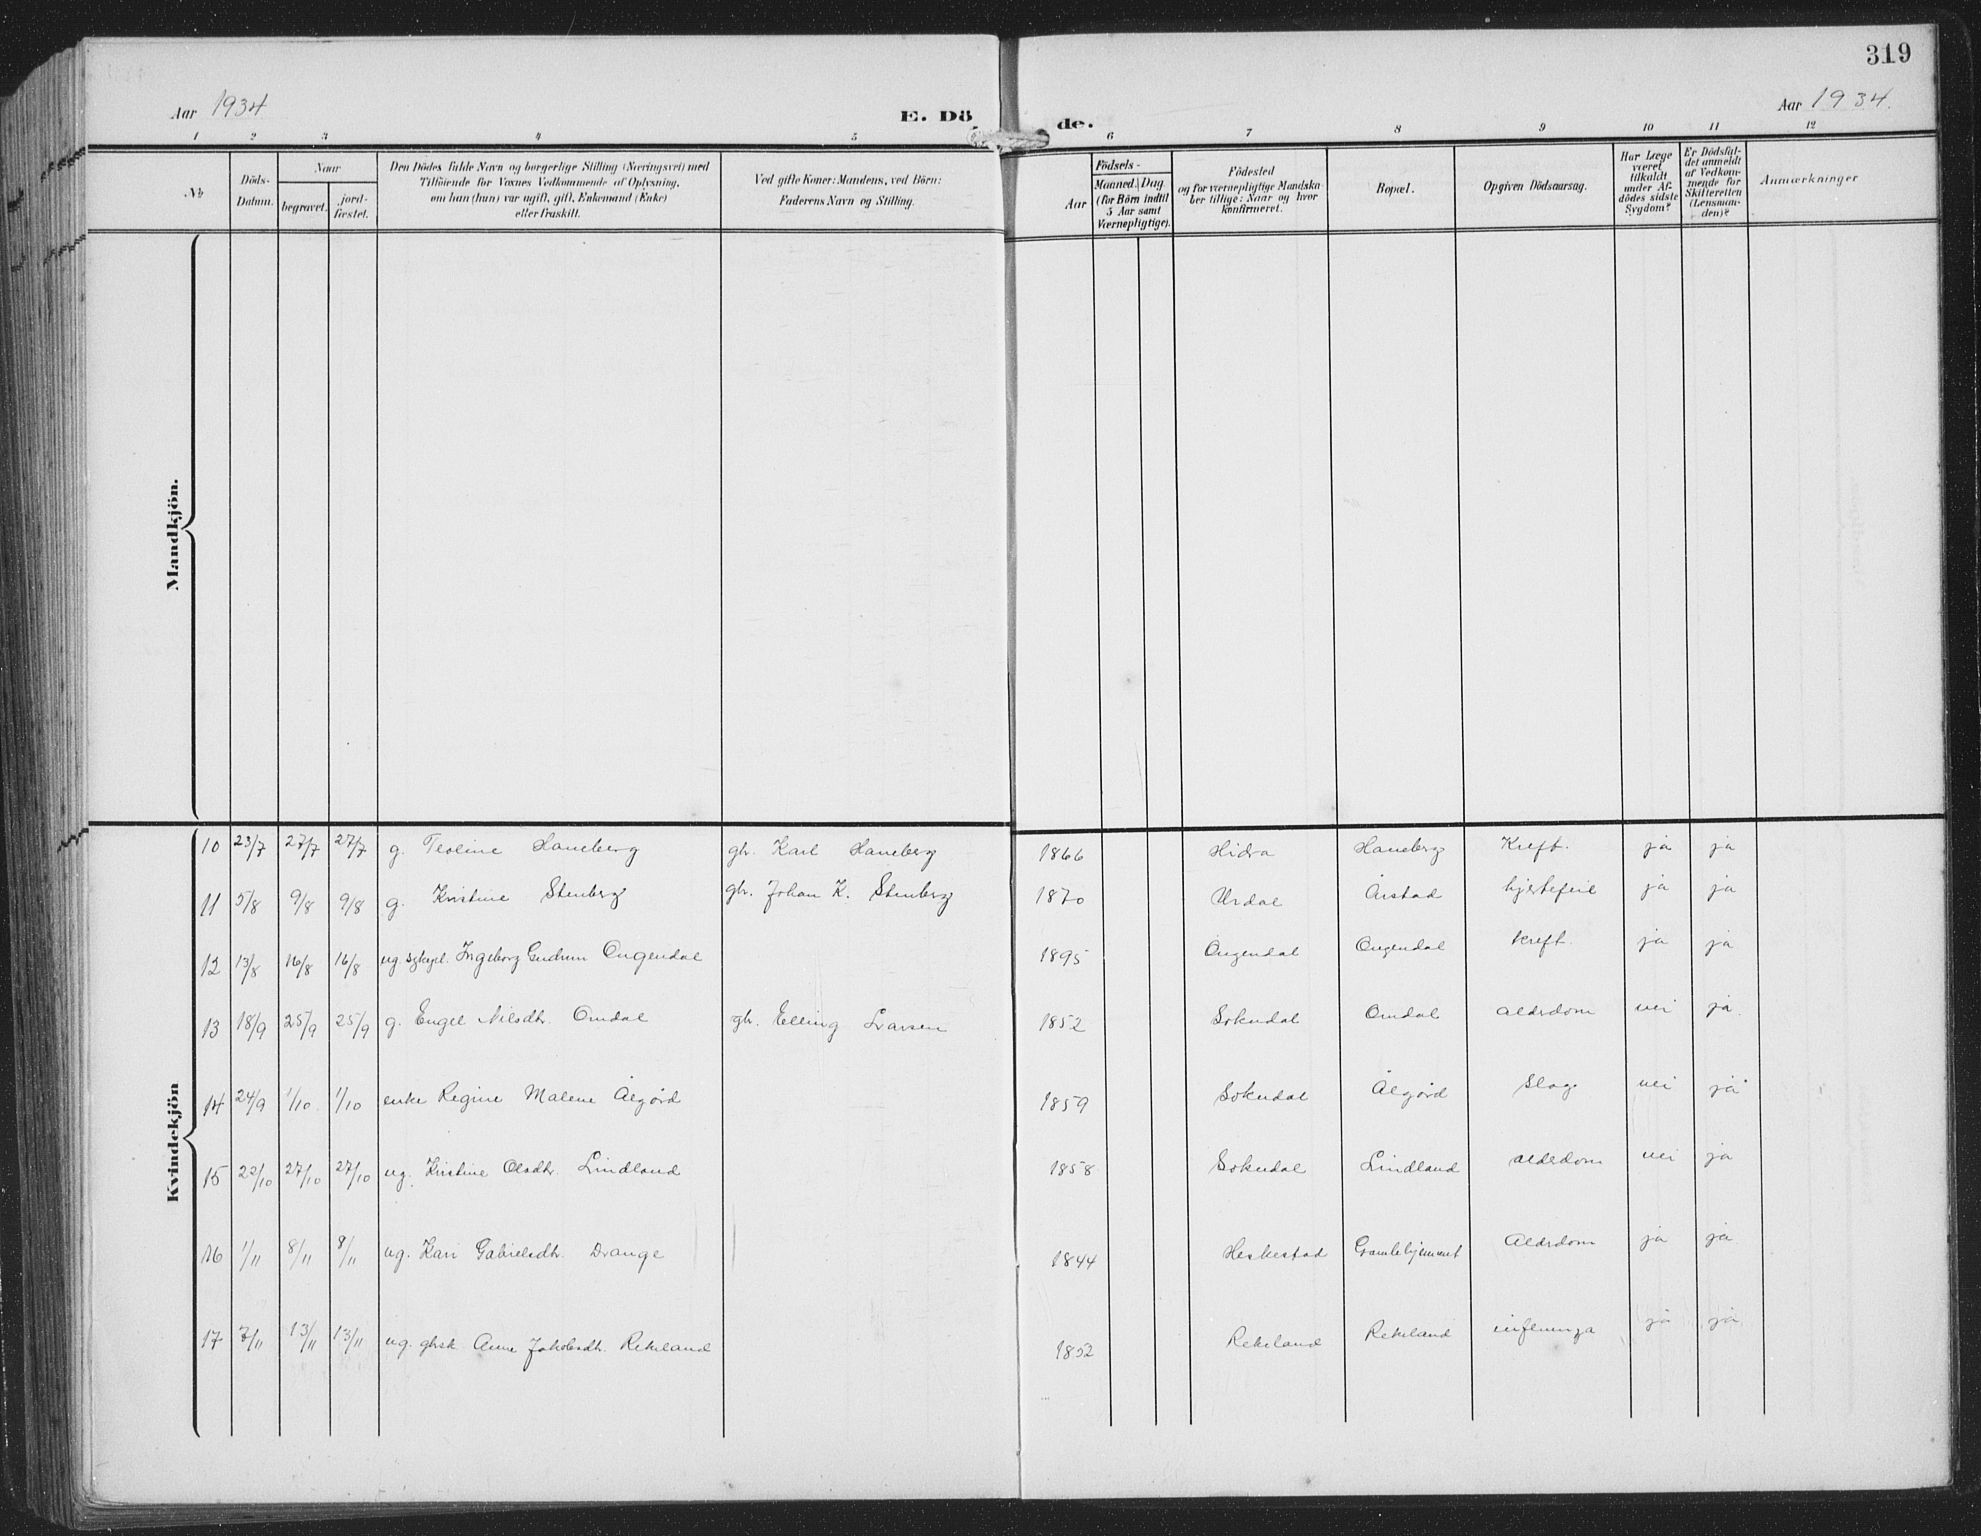 319
Aar 1934
E. Dö
de.
Aar 1934.
1 2 3 4 5 6 7 8 9 10 11 12
No
Döds-
Datum.
Naar
begravet.
jord-
fæstet.
Den Dödes fulde Navn og borgerlige Stilling (Næringsvei) med
Tilföiende for Voxnes Vedkommende af Oplysning,
om han (hun) var ugift, gift, Enkemand (Enke)
eller fraskilt.
Ved gifte Koner: Mandens, ved Börn:
Faderens Navn og Stilling.
Födsels-
Aar
Maaned. Dag
(for Börn indtil
5 Aar samt
Værnepligtige).
Födested
og for værnepligtige Mandska-
ber tillige: Naar og hvor
konfirmeret.
Bopæl.
Opgiven Dödsaarsag.
Har Læge
været
tilkaldt
under Af-
dödes sidste
Sygdom?
Er Dödsfal-
det anmeldt
af Vedkom-
mende for
Skifteretten
(Lensman-
den)?
Anmærkninger
Mandkjön.
Kvindekjön
10 23/7 27/7 27/7 g. Teoline Haneberg gh. Karl Haneberg 1866 Hidra Haneberg Kreft. ja ja
11 5/8 9/8 9/8 g. Kristine Stenberg gh. Johan K. Stenberg 1870 Urdal Årstad hjertefeil ja ja
12 13/8 16/8 16/8 ug. Ingeborg Gudrun Ougendal 1895 Ougendal Ougendal kreft. ja ja
13 18/9 25/9 25/9 g. Engel Nilsdtr. Omdal gh. Elling Larsen 1852 Sokndal Omdal alderdom nei ja.
14 24/9 1/10 1/10 enke Regine Malene Ålgård 1859 Sokndal Ålgård Slag nei ja
15 22/10 27/10 27/10 ug. Kristine Olsdtr. Lindland 1858 Sokndal Lindland alderdom nei ja
16 1/11 8/11 8/11 ug. Kari Gabrielsdtr. Drange 1844 Heskestad Gamlehjemmet Alderdom ja ja.
17 7/11 13/11 13/11 ug. Anne Jakobsdtr. Rekeland 1852 Rekeland Rekeland influenza ja ja